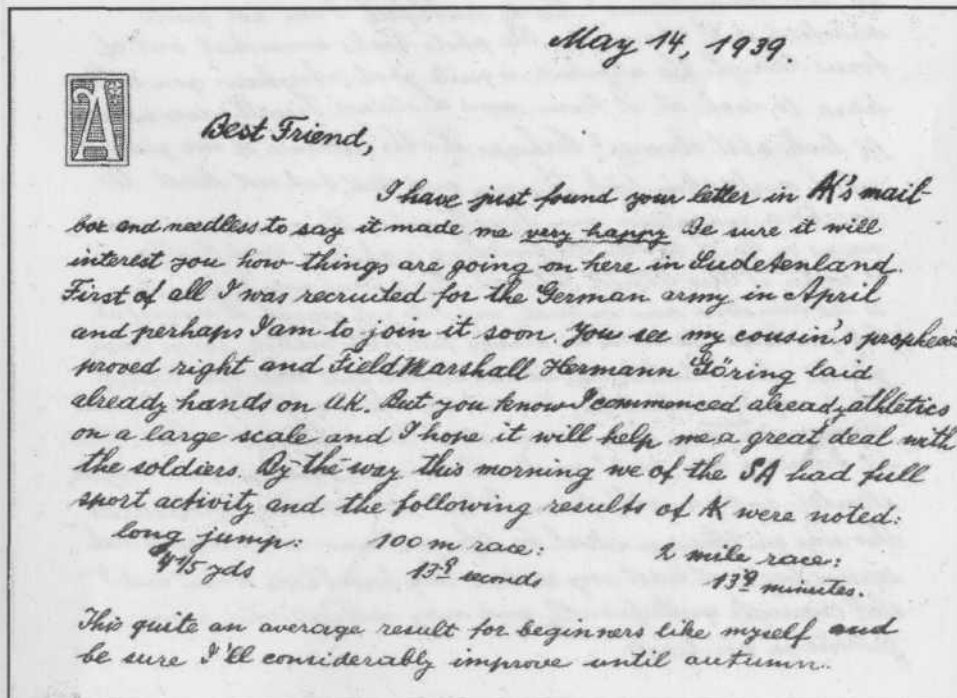 May 14, 1939.
A
Best Friend,
I have just found your letter in AK's mail
box and needless to say it made me very happy Be sure it will
interest you how things are going on here in Sudetenland.
First of all I was recruited for the German army in April
and perhaps I am to join it soon. You see my cousin's propheac
proved right and Field Marshall Hermann Göring laid
already hands on AK. But you know I commenced already athletics
on a large scale and I hope it will help me a great deal with
the soldiers. By the way this morning we of the SA had full
sport activity and the following results of AK were noted:
long jump: 100 m race: 2 mile race:
yds seconds minutes.
This quite an average result for beginners like myself and
be sure I'll considerably improve until autumn.